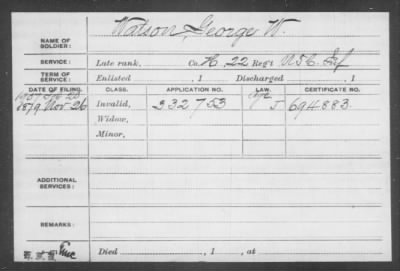 NAME OF SOLDIER: Watson, George W.
SERVICE: Late rank, Co. H, 22 Reg't U.S.C. Inf
TERM OF SERVICE: Enlisted , 1 Discharged , 1
DATE OF FILING. CLASS. APPLICATION NO. LAW. CERTIFICATE NO.
1879 Nov 26 Invalid, 332753 J 694.883.
Widow,
Minor,
ADDITIONAL SERVICES:
REMARKS:
Died , 1 , at